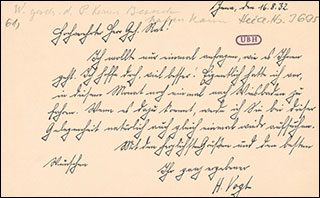 Jena, den 16.8.32
Heid. Hs. 3695
61,
UBH
Hochgeehrter Herr Geh. Rat!
Ich wollte nur einmal anfragen, wie es Ihnen
geht. Ich hoffe doch, viel besser. Eigentlich hatte ich vor,
in diesem Monat noch einmal nach Wiesbaden zu
fahren. Wenn es dazu kommt, werde ich Sie bei dieser
Gelegenheit natürlich auch gleich einmal
Mit den herzlichsten Grüßen und den besten
Wünschen
Ihr ganz ergebener
H. Vogt